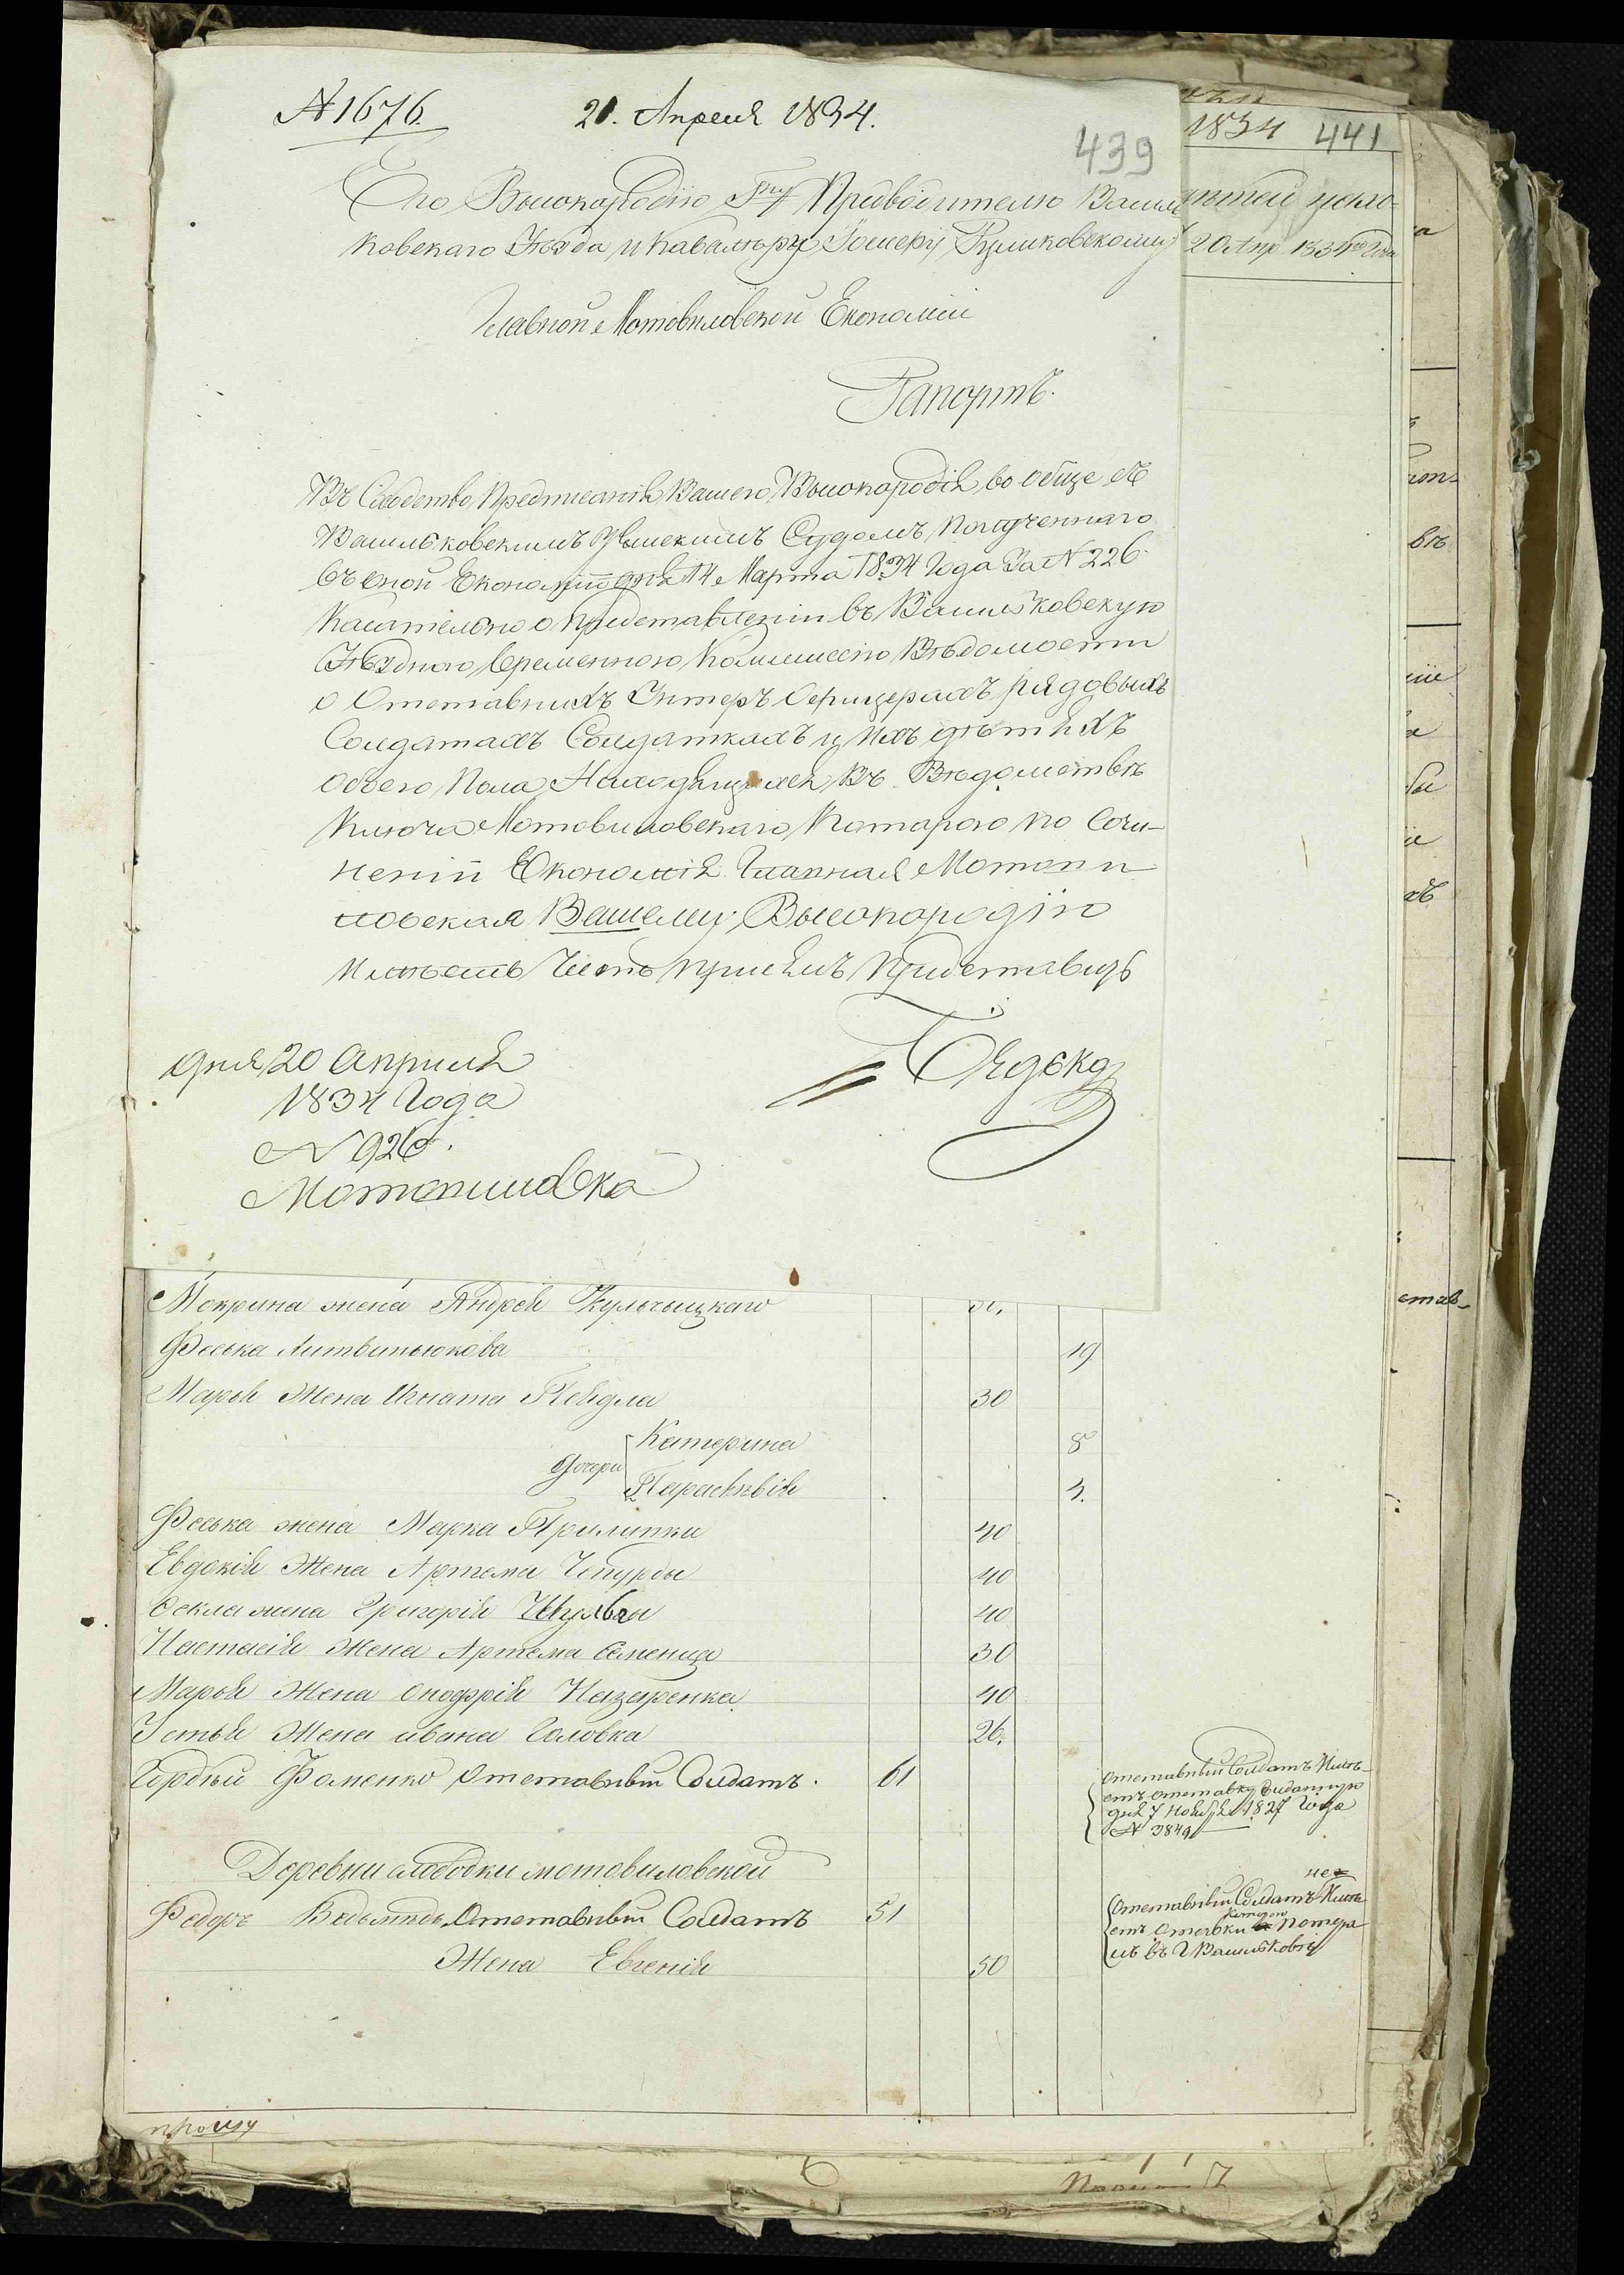 № 1676.
21. Апреля 1834.
439
Его Высокородію Гну Предводителю Василь
ковскаго Уезда и Кавалеру Іосифу Куликовскому
Главной Мотовиловской Економіи
Рапортъ.
Въ Следство Предписанія Вашего Высокородія во обще съ
Васильковскимъ Земскимъ Судомъ полученнаго
въ сной Економіи дня 14 Марта 1834 Года За № 226
Касательно о представленіи въ Васильковскую
Уѣздною Временною Коммисію Вѣдомости
о Отставныхъ Унтеръ Офицерахъ рядовыхъ
Солдатахъ Солдаткахъ и ихъ дѣтяхъ
обоего Пола Находящихся Въ Вѣдомствѣ
Ключа Мотовиловскаго Которою по Сочи-
неніи Економія Главная Мотови
ловская Вашему Высокородію
имѣетъ Честь присемъ представить
дня 20 Априля
1834 Года
№ 926.
Мотовиловка
1834 441
20 Апр 1834го Года
Мокрина жена Андрея Кульчицкаго
Феська Литвинюкова 19
Марья Жена Игната 30
дочери Катерина 8
Парасковія 3.
Феська жена Марка Прилипки 40
Евдокія Жена Артема Чепурды 40
Фекла жена Григорія Шульги 40
Настасія Жена Артема Семенца 30
Марья Жена Онофрія Назаренка 40
Устья Жена ивана Головка 26.
Гордѣй Фоменко Отставный Солдатъ. 61
Отставный Солдатъ Имѣ-
етъ отставку виданную
дня 7 Ноября 1827 Года
№ 3849
Деревни слободки мотовиловской
Федоръ Ведьмѣдь Отставный Солдатъ 51
не
Отставный Солдатъ Имѣ
етъ Отставки которою потеря
лъ въ Г Васильковѣ
Жена Евгенія 50
прошу